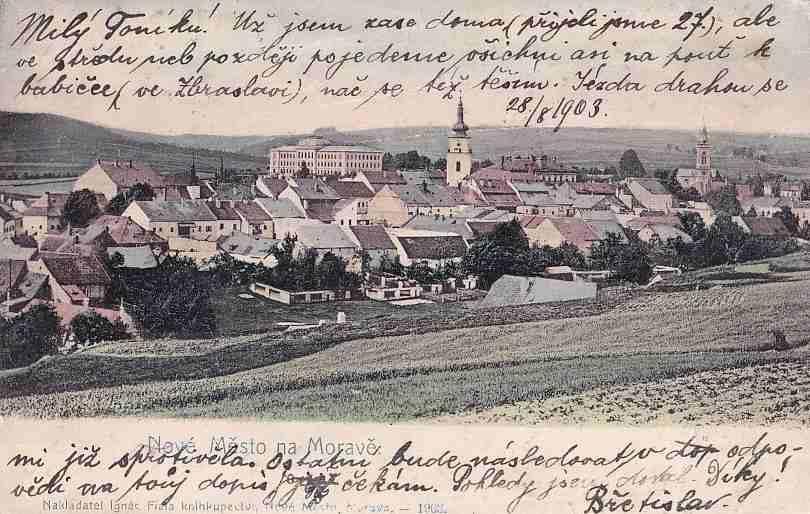 Milý Toníku! Už jsem zase doma (přijeli jsme 27.), ale
ve středu neb později pojedeme všichni asi na pouť k
babičce (ve Zbraslavi), nač se též těším. Jízda drahou se
28/8 1903.
Nové Město na Moravě
mi již sprotivěla. Ostatní bude následovat v odpo-
vědi na tvůj dopis, čekám. Pohledy jsem dostal. Díky!
Nakladatel Ignác Fiala knihkupectví, Nové Město, Morava. – 1903.
Břetislav.